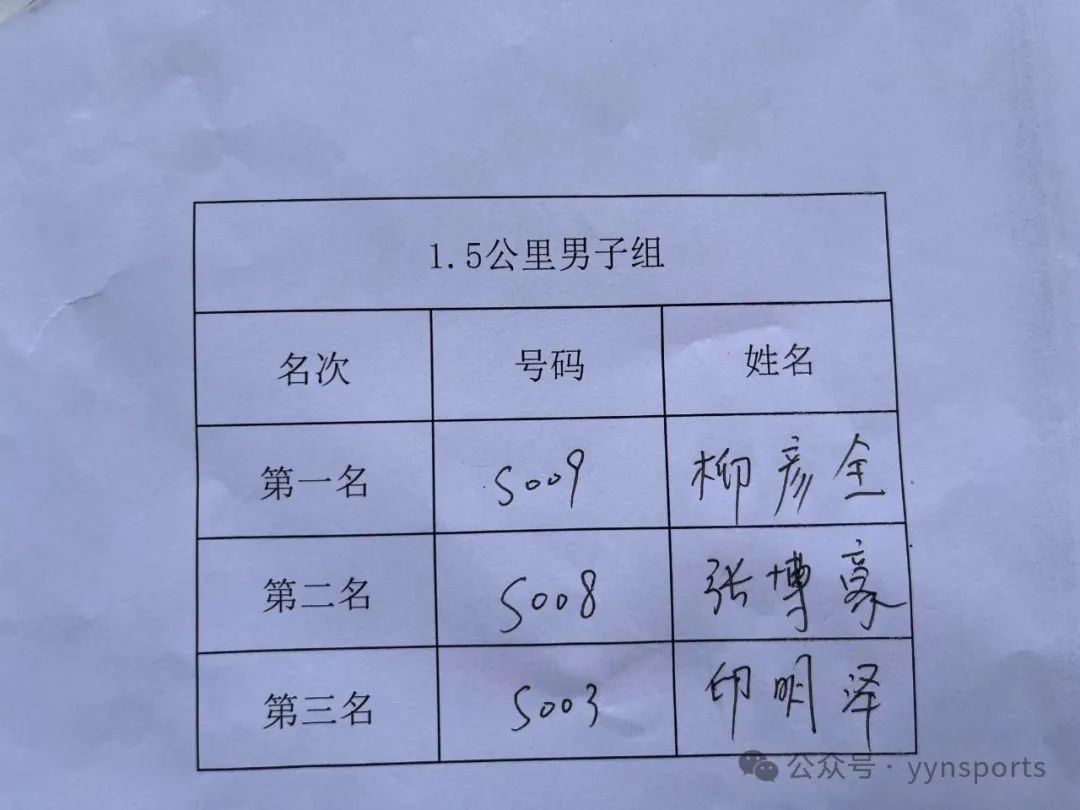 1.5公里男子组
名次 号码 姓名
第一名 S009 柳彦全
第二名 S008 张博豪
第三名 S003 印明泽
公众号 · yynsports